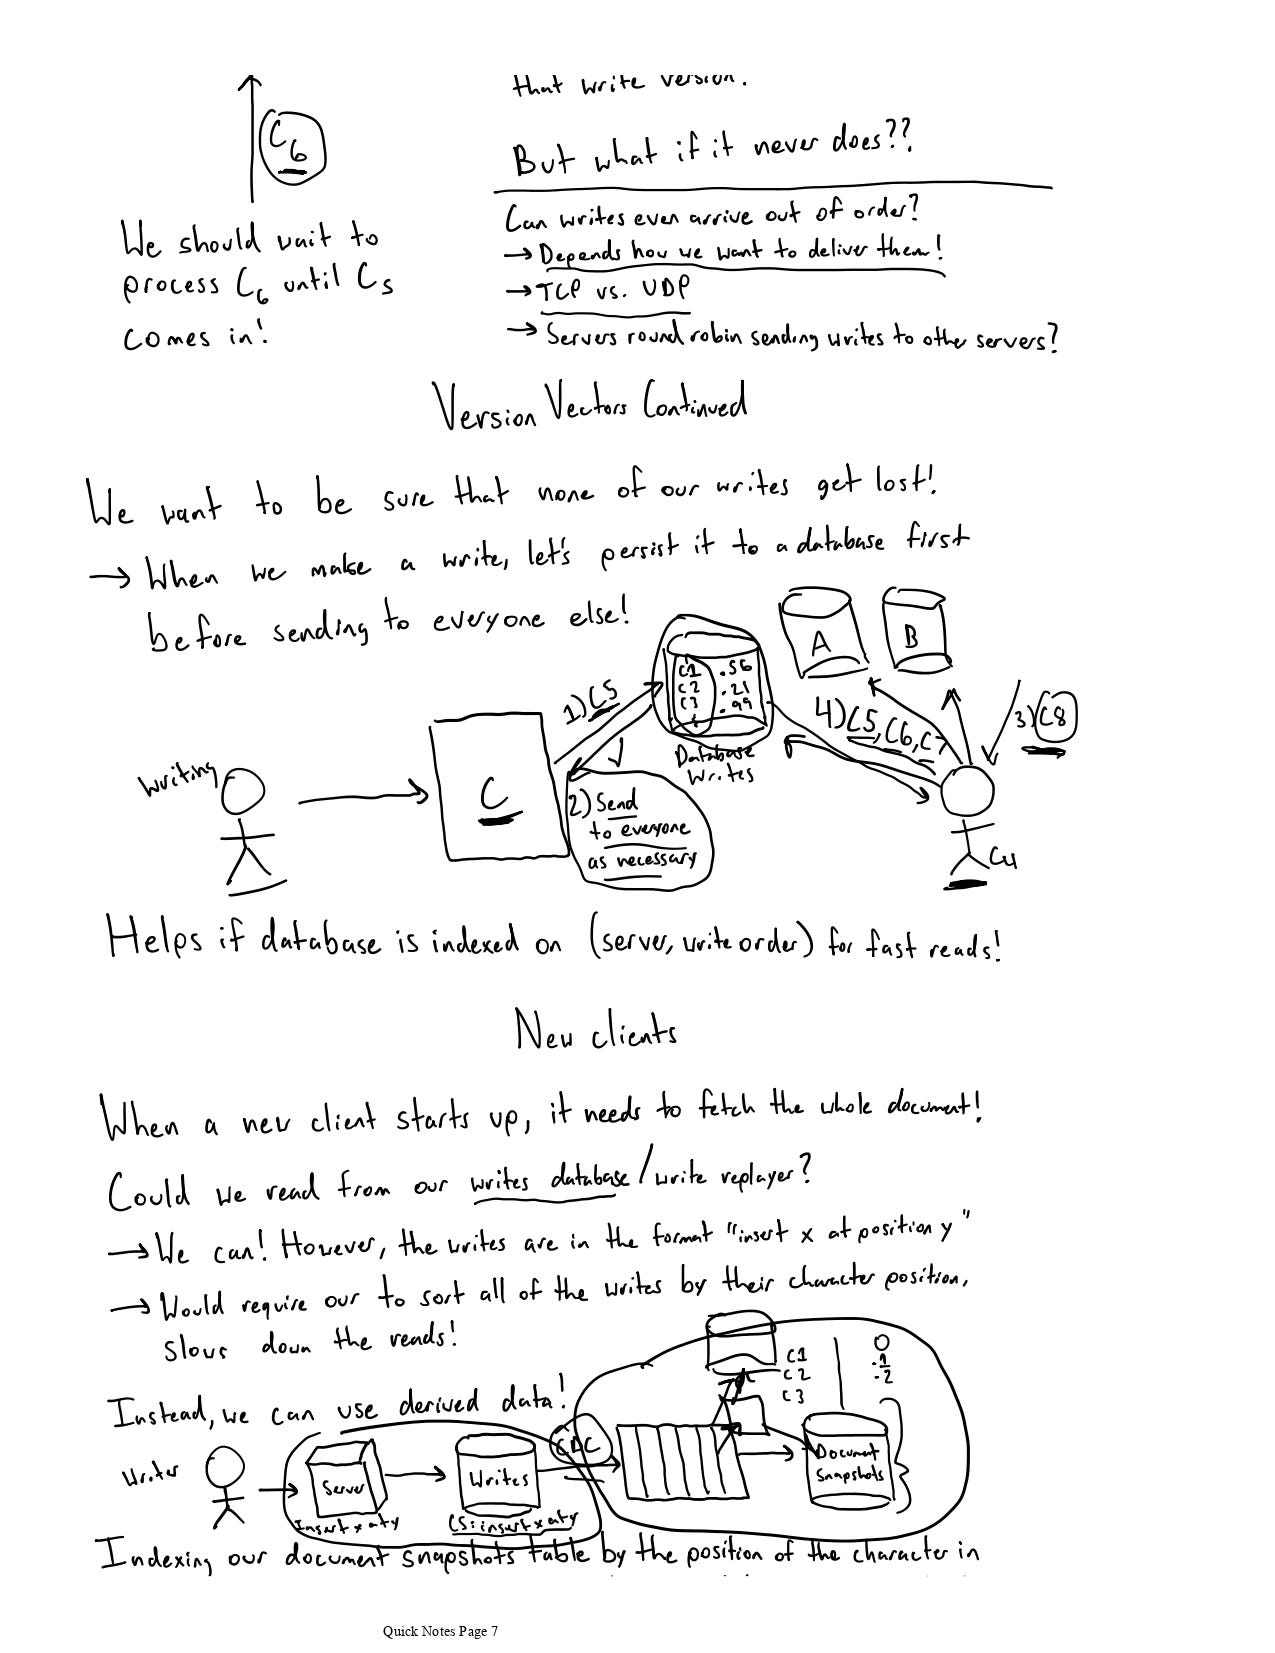 that write version.
C6
But what if it never does??
We should wait to
process C6 until C5
comes in!
Can writes even arrive out of order?
→ Depends how we want to deliver them!
→ TCP vs. UDP
→ Servers round robin sending writes to other servers?
Version Vectors Continued
We want to be sure that none of our writes get lost!
→ When we make a write, let's persist it to a database first
before sending to everyone else!
A
B
C1 .56
C2 .21
C3 .99
1) C5
4) C5, C6, C7
3) C8
Database
Writes
Writing
C
2) Send
to everyone
as necessary
C4
Helps if database is indexed on (server, write order) for fast reads!
New clients
When a new client starts up, it needs to fetch the whole document!
Could we read from our writes database/write replayer?
→ We can! However, the writes are in the format "insert x at position y"
→ Would require our to sort all of the writes by their character position,
slows down the reads!
C1 0
C2 .1
C3 .2
Instead, we can use derived data!
CDC
Writer
Server
Writes
Document
Snapshots
Insert x at y
C5: insert x at y
Indexing our document snapshots table by the position of the character in
Quick Notes Page 7